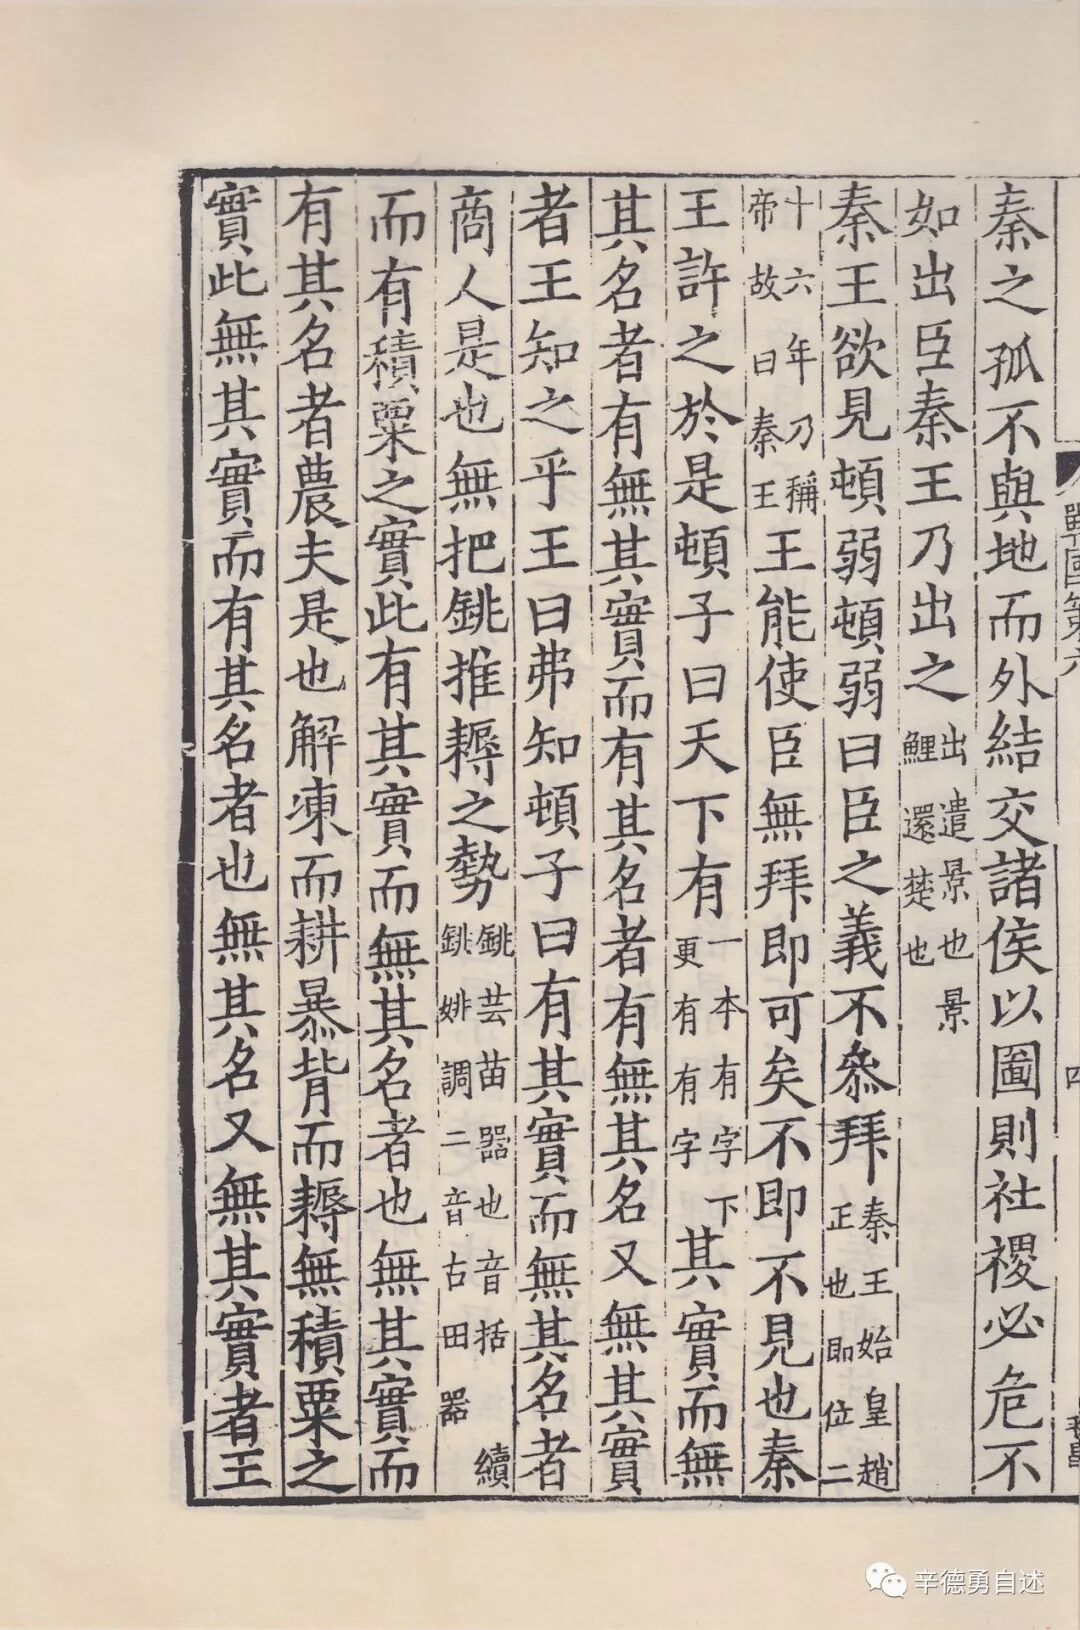 戰國策六 四
秦之孤不與地而外結交諸侯以圖則社稷必危不
如出臣秦王乃出之出遣景也景鯉還楚也
秦王欲見頓弱頓弱曰臣之義不叅拜秦王始皇趙正也即位二
十六年乃稱帝故曰秦王王能使臣無拜即可矣不即不見也秦
王許之於是頓子曰天下有一本有字下更有有字其實而無
其名者有無其實而有其名者有無其名又無其實
者王知之乎王曰弗知頓子曰有其實而無其名者
商人是也無把銚推耨之勢銚芸苗器也音括續銚姚調二音古田器
而有積粟之實此有其實而無其名者也無其實而
有其名者農夫是也解凍而耕暴背而耨無積粟之
實此無其實而有其名者也無其名又無其實者王
辛德勇自述